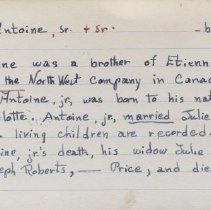 Antoine, Sr. + Sr. -b
ne was a brother of Etienn
the North West Company in Canad
Antoine, jr, was born to his nat
lotte. Antoine, jr, married Julie
. living children are recorded.
ine, jr.'s death, his widow Julie
eph Roberts, — Price, and died